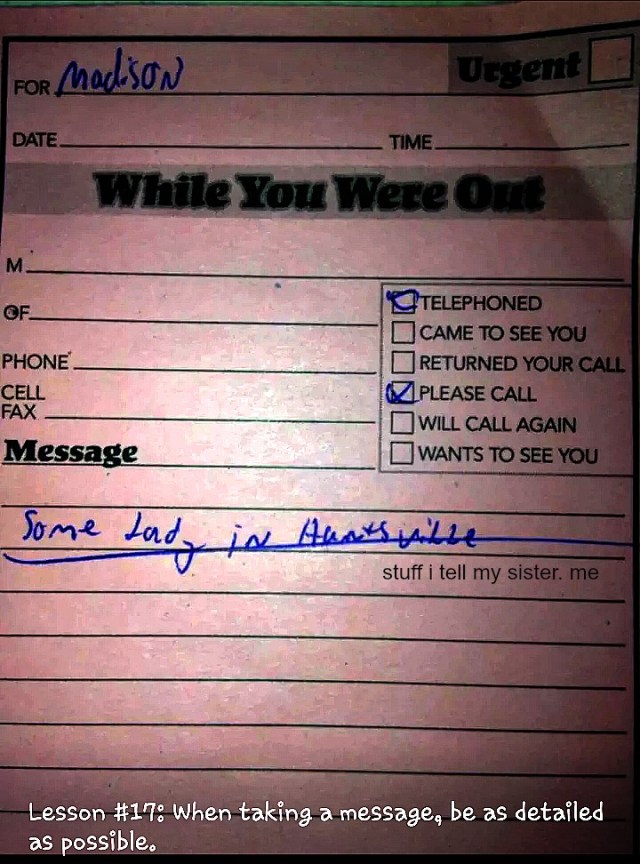 FOR Madison Urgent
DATE TIME
While You Were Out
M
OF
PHONE
CELL
FAX
Message
TELEPHONED
CAME TO SEE YOU
RETURNED YOUR CALL
PLEASE CALL
WILL CALL AGAIN
WANTS TO SEE YOU
Some Lady in Huntsville
stuff i tell my sister. me
Lesson #17: When taking a message, be as detailed
as possible.